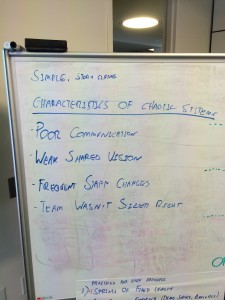 SIMPLE,
CHARACTERISTICS OF CHAOTIC SYSTEMS
- POOR COMMUNICATION
- WEAK SHARED VISION
- FREQUENT STAFF CHANGES
- TEAM WASN'T SIZED RIGHT
OF FIXED LENGTH